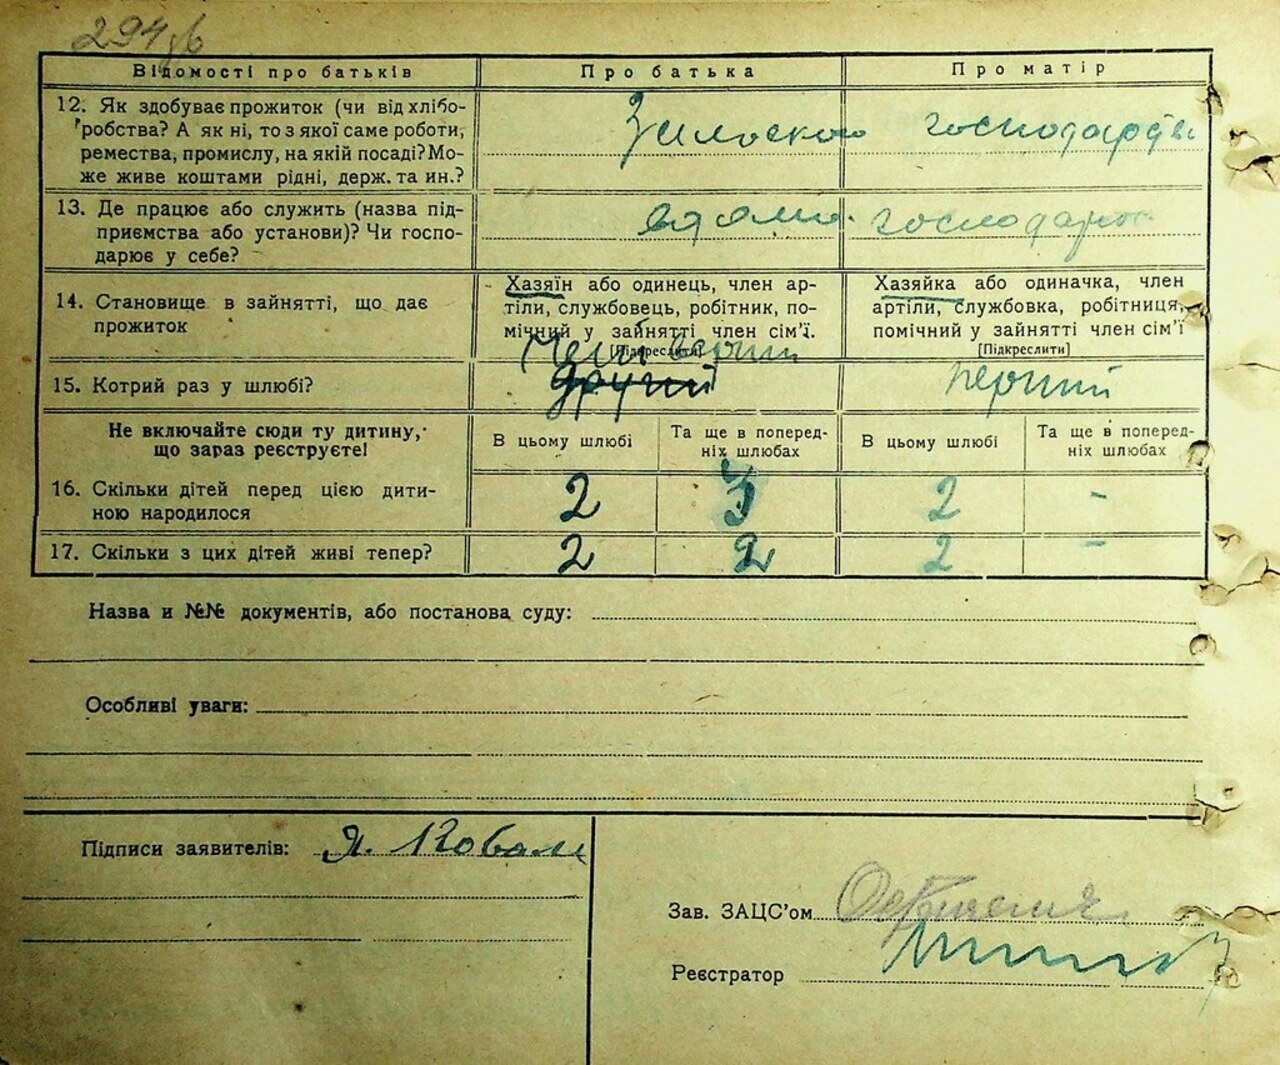 294
Відомості про батьків
Про батька
Про матір
12. Як здобуває прожиток (чи від хлібо-
робства? А як ні, то з якої саме роботи,
ремества, промислу, на якій посаді? Мо-
же живе коштами рідні, держ. та ин.?
З сільського господарства
13. Де працює або служить (назва під-
приємства або установи)? Чи госпо-
дарює у себе?
господарює
14. Становище в зайнятті, що дає
прожиток
Хазяїн або одинець, член ар-
тіли, службовець, робітник, по-
мічний у зайнятті член сім'ї.
[Підкреслити]
Хазяйка або одиначка, член
артіли, службовка, робітниця,
помічний у зайнятті член сім'ї
[Підкреслити]
15. Котрий раз у шлюбі?
другий
перший
Не включайте сюди ту дитину,
що зараз реєструєте!
В цьому шлюбі
Та ще в поперед-
ніх шлюбах
В цьому шлюбі
Та ще в поперед-
ніх шлюбах
16. Скільки дітей перед цією дити-
ною народилося
2
2 -
17. Скільки з цих дітей живі тепер?
2 2 2 -
Назва и №№ документів, або постанова суду:
Особливі уваги:
Підписи заявителів: Я. Коваль
Зав. ЗАЦС'ом
Реєстратор